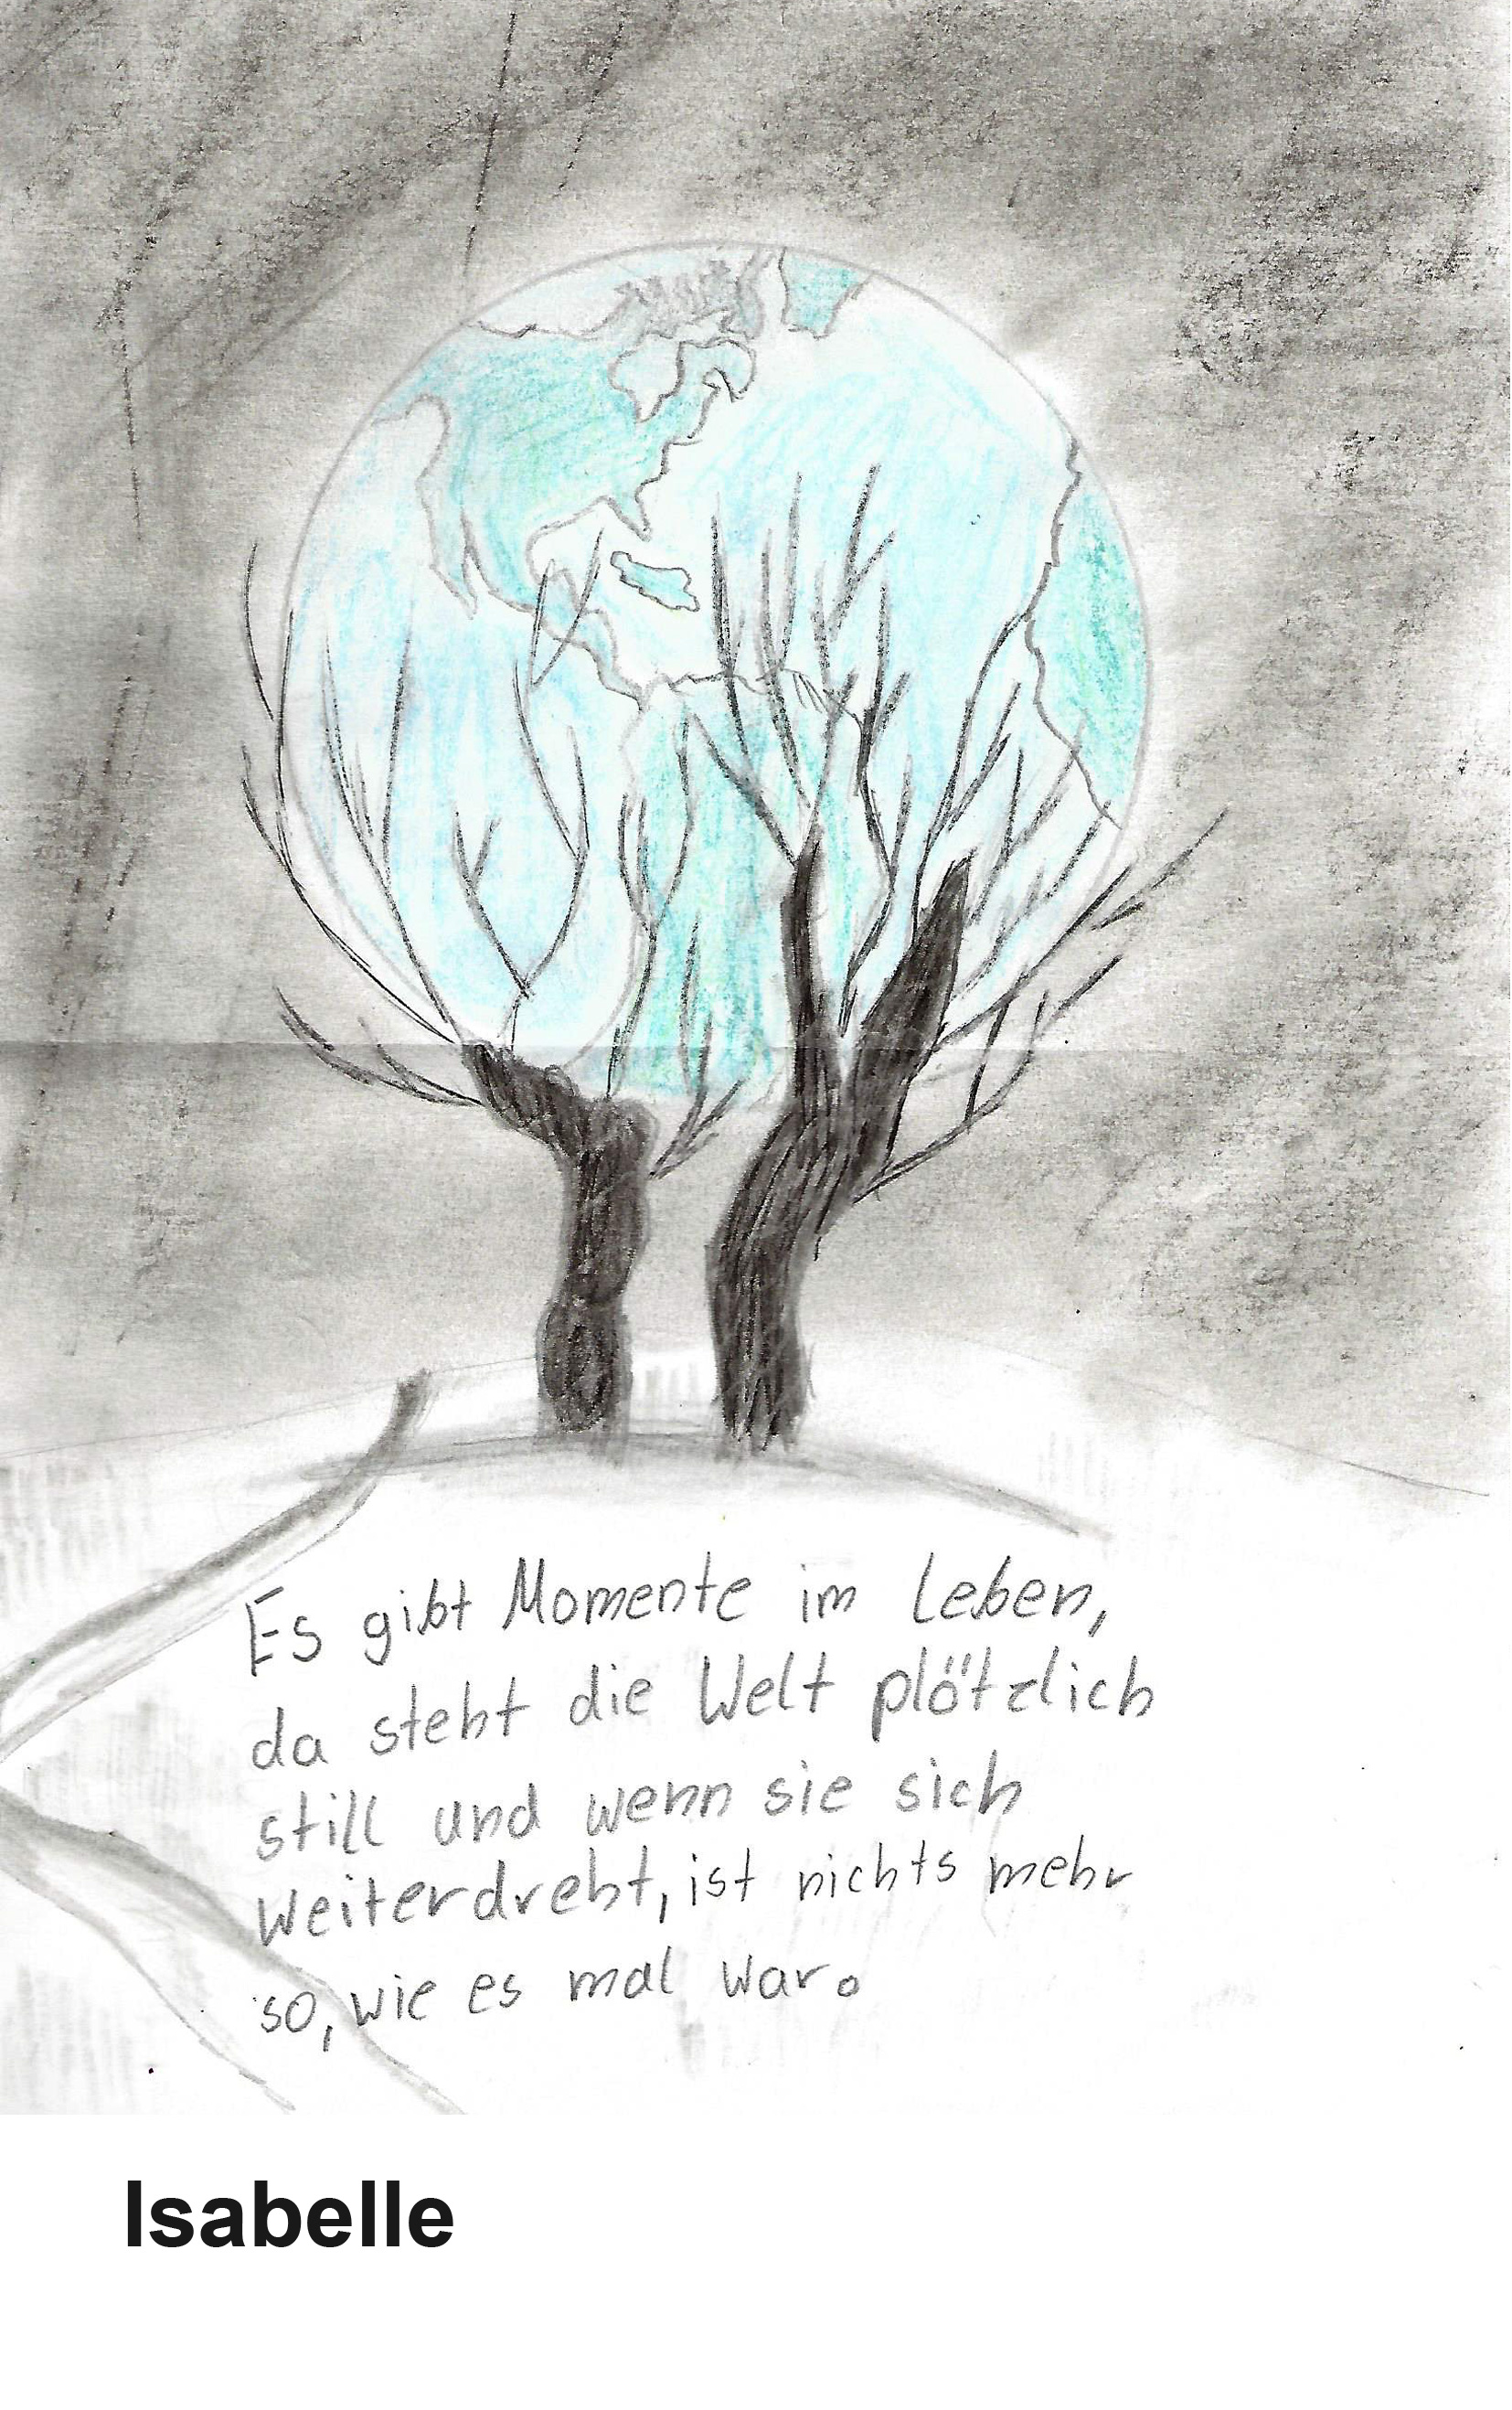 Es gibt Momente im Leben,
da steht die Welt plötzlich
still und wenn sie sich
weiterdreht, ist nichts mehr
so, wie es mal war.
Isabelle